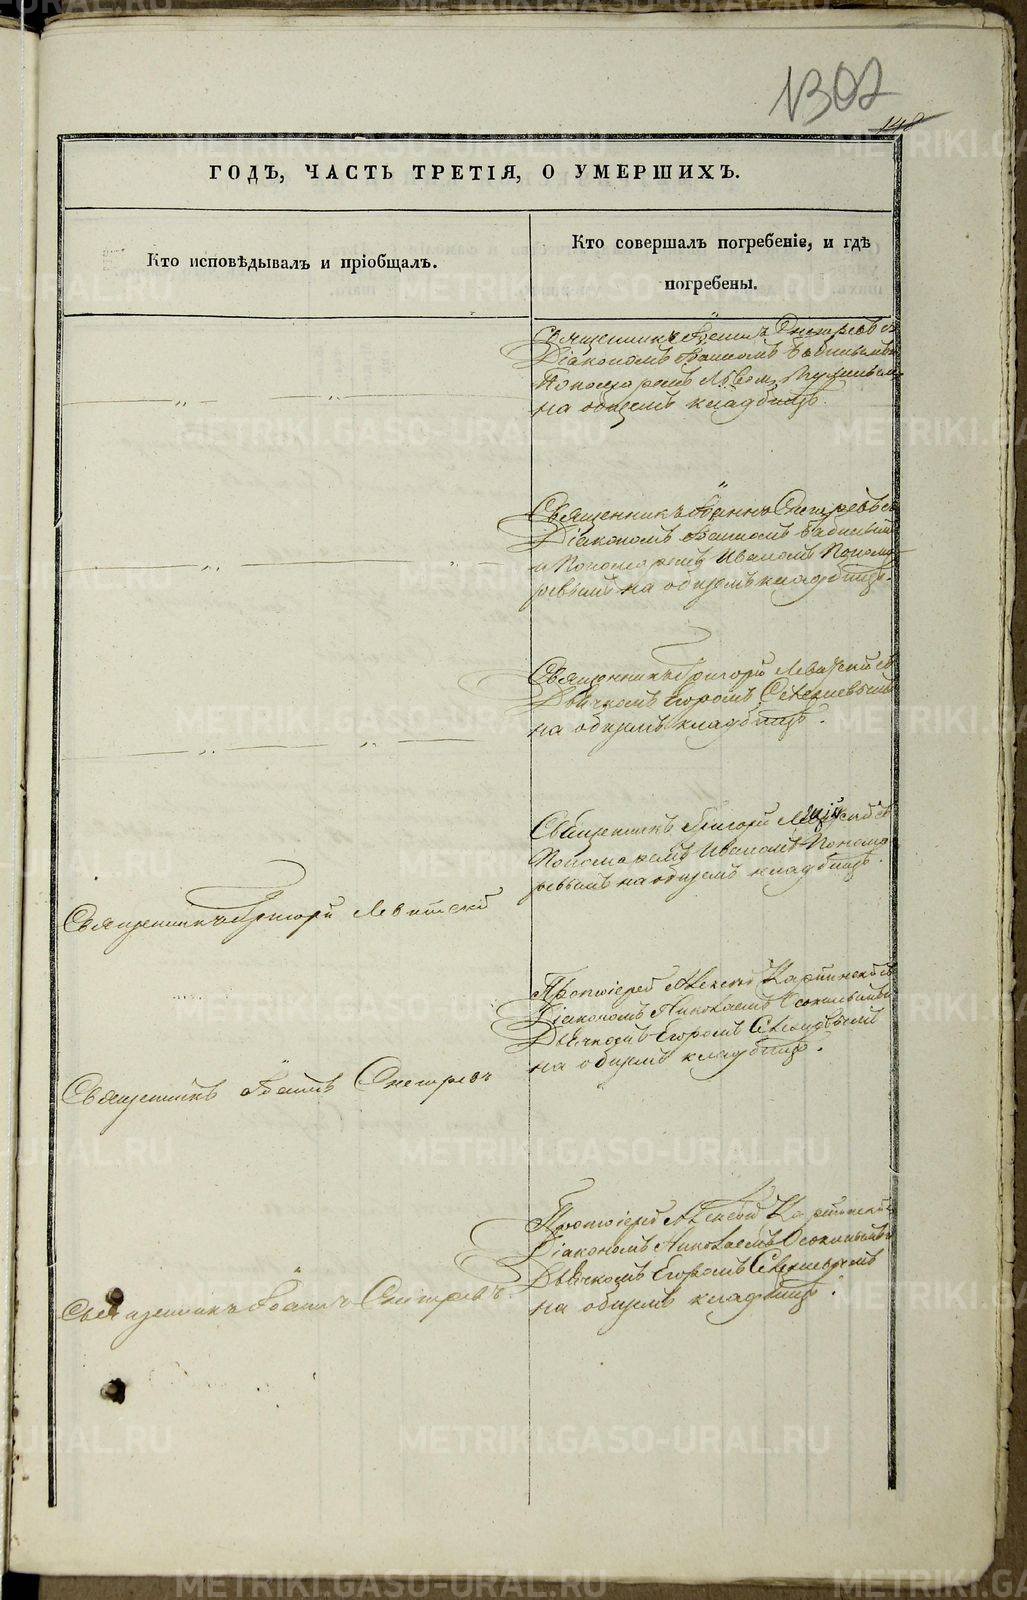 1302
148
ГОДЪ, ЧАСТЬ ТРЕТІЯ, О УМЕРШИХЪ.
Кто исповѣдывалъ и пріобщалъ.
Кто совершалъ погребеніе, и гдѣ
погребены.
Священникъ Іоаннъ Снегиревъ съ
Діакономъ Іоанномъ
Пономаремъ
на общемъ кладбищѣ.
Священникъ Іоаннъ Снегиревъ съ
Діакономъ Іоанномъ
и Пономаремъ Иваномъ Понома-
ревымъ на общемъ кладбищѣ.
Священникъ Григорій Левитскій съ
Дьячкомъ Егоромъ
на общемъ кладбищѣ.
Священникъ Григорій Левитскій съ
Пономаремъ Иваномъ Понома-
ревымъ на общемъ кладбищѣ.
Священникъ Григорій Левитскій
Протоіерей Алексѣй Карпинскій съ
Діакономъ Николаемъ
Дьячкомъ Егоромъ
на общемъ кладбищѣ.
Священникъ Іоаннъ Снегиревъ
Протоіерей Алексѣй Карпинскій
Діакономъ Николаемъ
Дьячкомъ Егоромъ
на общемъ кладбищѣ.
Священникъ Іоаннъ Снегиревъ
METRIKI.GASO-URAL.RU